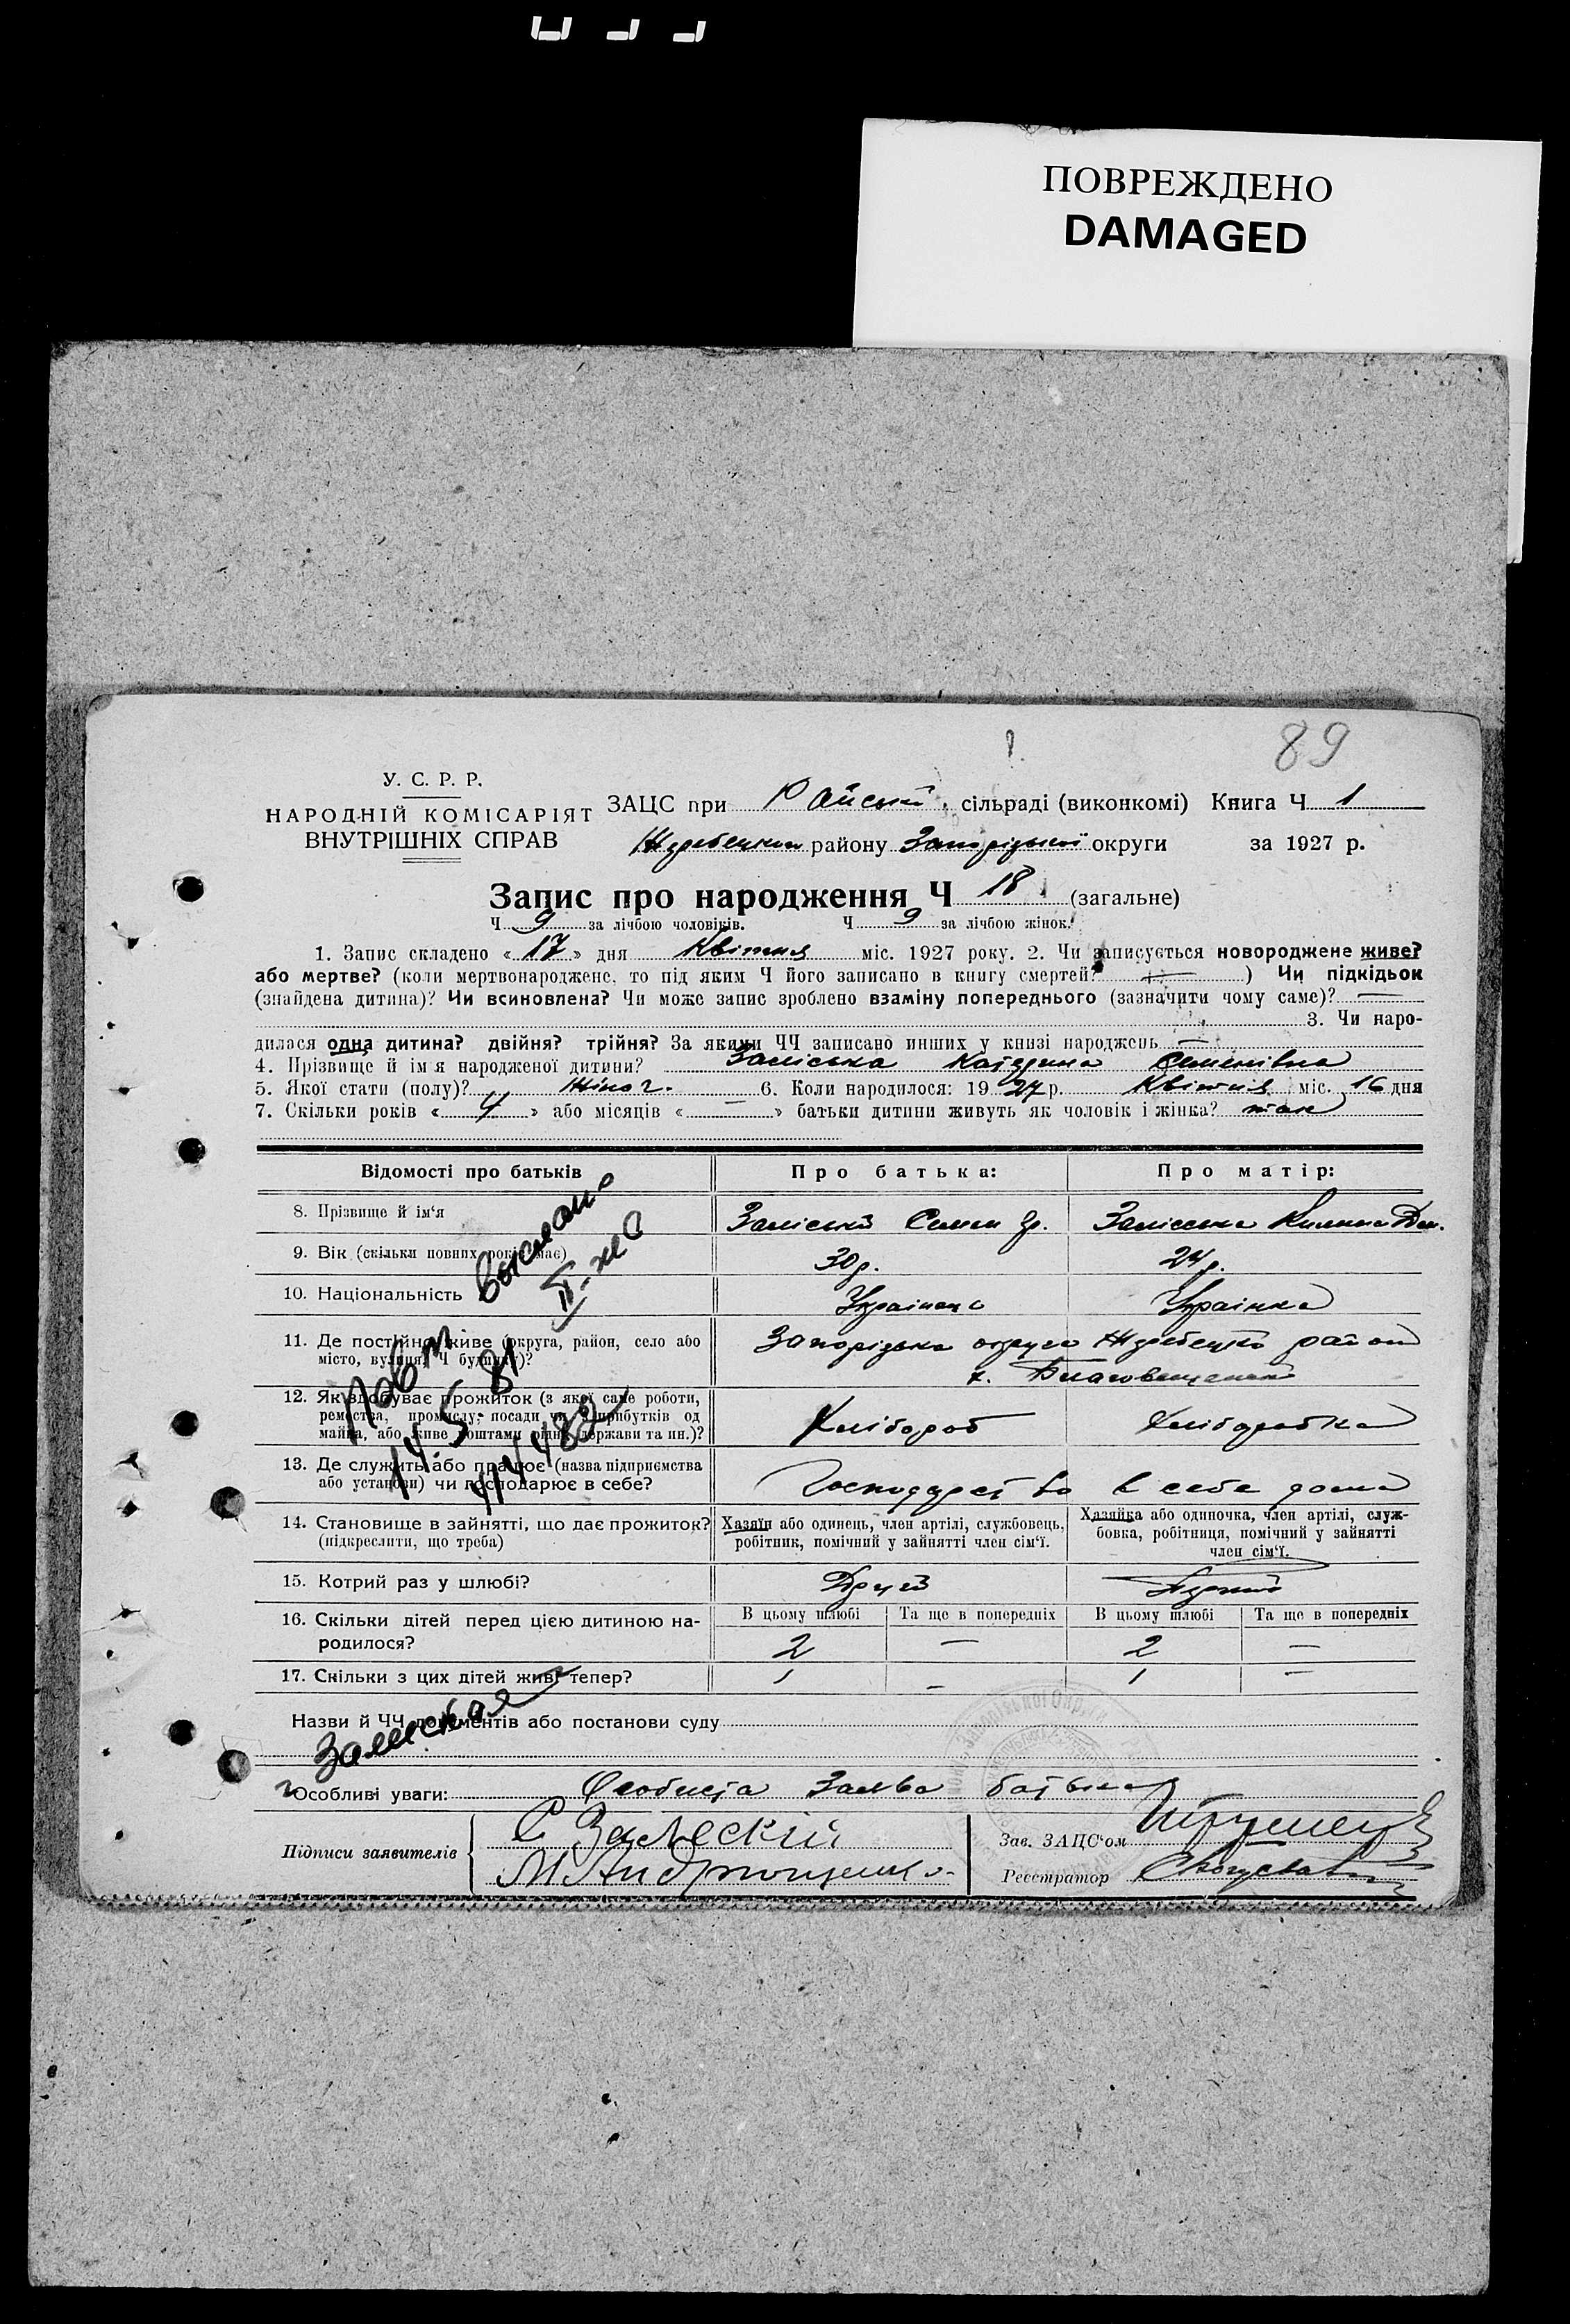 ПОВРЕЖДЕНО
DAMAGED
89
У. С. Р. Р.
НАРОДНІЙ КОМІСАРІЯТ
ВНУТРІШНІХ СПРАВ
ЗАЦС при Райській сільраді (виконкомі) Книга Ч 1
Жеребецьком району Запорізької округи за 1927 р.
Запис про народження Ч 18 (загальне)
Ч 9 за лічбою чоловіків. Ч 9 за лічбою жінок.
1. Запис складено «17» дня Квітня міс. 1927 року. 2. Чи записується новороджене живе?
або мертве? (коли мертвонароджене, то під яким Ч його записано в книгу смертей? — ) Чи підкідьок
(знайдена дитина)? Чи всиновлена? Чи може запис зроблено взаміну попереднього (зазначити чому саме)? —
3. Чи наро-
дилася одна дитина? двійня? трійня? За якими ЧЧ записано инших у книзі народжень —
4. Прізвище й імʼя народженої дитини? Заліська Катерина Семенівна
5. Якої стати (полу)? Жіноч. 6. Коли народилося: 1927 р. Квітня міс. 16 дня
7. Скільки років «4» або місяців « — » батьки дитини живуть як чоловік і жінка? так
Відомості про батьків Про батька: Про матір:
8. Прізвище й імʼя Заліський Семен Заліська
9. Вік (скільки повних років має) 30 р. 24 р.
10. Національність Українець Українка
11. Де постійно живе (округа, район, село або
місто, вулиця, Ч будинку)?
Запорізька округа Жеребецький район
х. Благовещенка
12. Як здобуває прожиток (з якої саме роботи,
ремества, промислу, посади чи з прибутків од
майна, або живе коштами рідні, держави та ин.)?
Хлібороб Хлібаробка
13. Де служить або працює (назва підприємства
або установи) чи господарює в себе?
Господарство в себе дома
14. Становище в зайнятті, що дає прожиток?
(підкреслити, що треба)
Хазяїн або одинець, член артілі, службовець,
робітник, помічний у зайнятті член сімʼї.
Хазяйка або одиночка, член артілі, служ-
бовка, робітниця, помічний у зайнятті
член сімʼї.
15. Котрий раз у шлюбі? Другий Перший
16. Скільки дітей перед цією дитиною на-
родилося?
В цьому шлюбі Та ще в попередніх В цьому шлюбі Та ще в попередніх
2 — 2 —
17. Скільки з цих дітей живі тепер? 1 — 1 —
Повт выслано
14.5 81
II-ЖС
Залеская
Назви й ЧЧ документів або постанови суду
Особливі уваги: Особиста Заява батька
Підписи заявителів
С Залеский
М Андрющенко
Зав. ЗАЦСʼом
Реєстратор